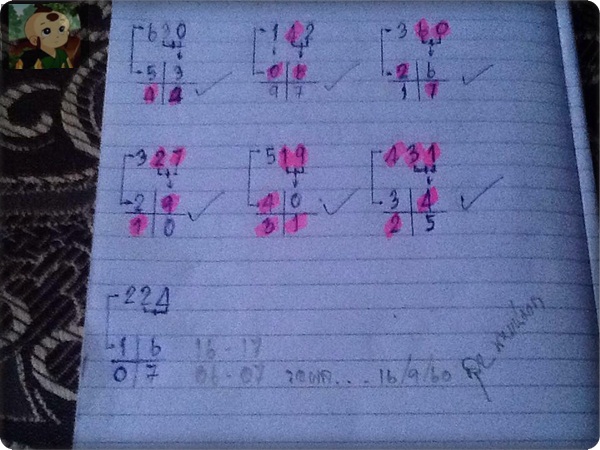 620 142 360
5 3 0 8 2 6
4 4 9 7 1 7
327 519 431
2 9 4 0 3 4
1 0 3 1 2 5
224
1 6 16-17
0 7 06-07 รอผล.... 16/9/60